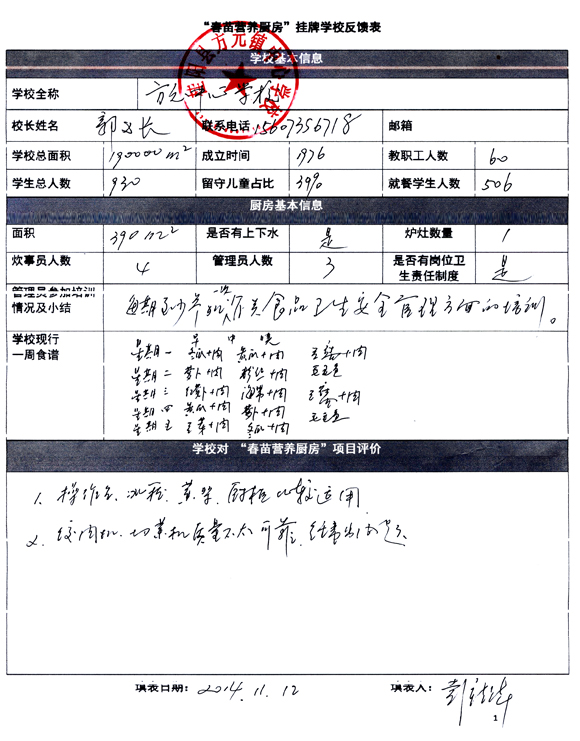 “春苗营养厨房”挂牌学校反馈表
学校基本信息
学校全称 方元中心学校
校长姓名 郭 长 联系电话 15607356718 邮箱
学校总面积 190000m² 成立时间 1976 教职工人数 60
学生总人数 930 留守儿童占比 39% 就餐学生人数 506
厨房基本信息
面积 390m² 是否有上下水 是 炉灶数量 1
炊事员人数 4 管理员人数 3 是否有岗位卫生责任制度 是
管理员参加培训情况及小结 每期至少举 有关食品卫生安全管理方面的培训。
学校现行一周食谱
早 中 晚
星期一 冬瓜+肉 黄瓜+肉 +肉
星期二 萝卜+肉 +肉
星期三 红萝卜+肉 海带+肉 +肉
星期四 黄瓜+肉 萝卜+肉
星期五 +肉 冬瓜+肉
学校对 “春苗营养厨房”项目评价
1. 操作台、冰柜、蒸柴、厨柜比较适用
2. 绞肉机、切菜机质量不太可靠,经常出问题
填表日期: 2014.11.12 填表人: 彭
1
桂阳县方元镇中心学校